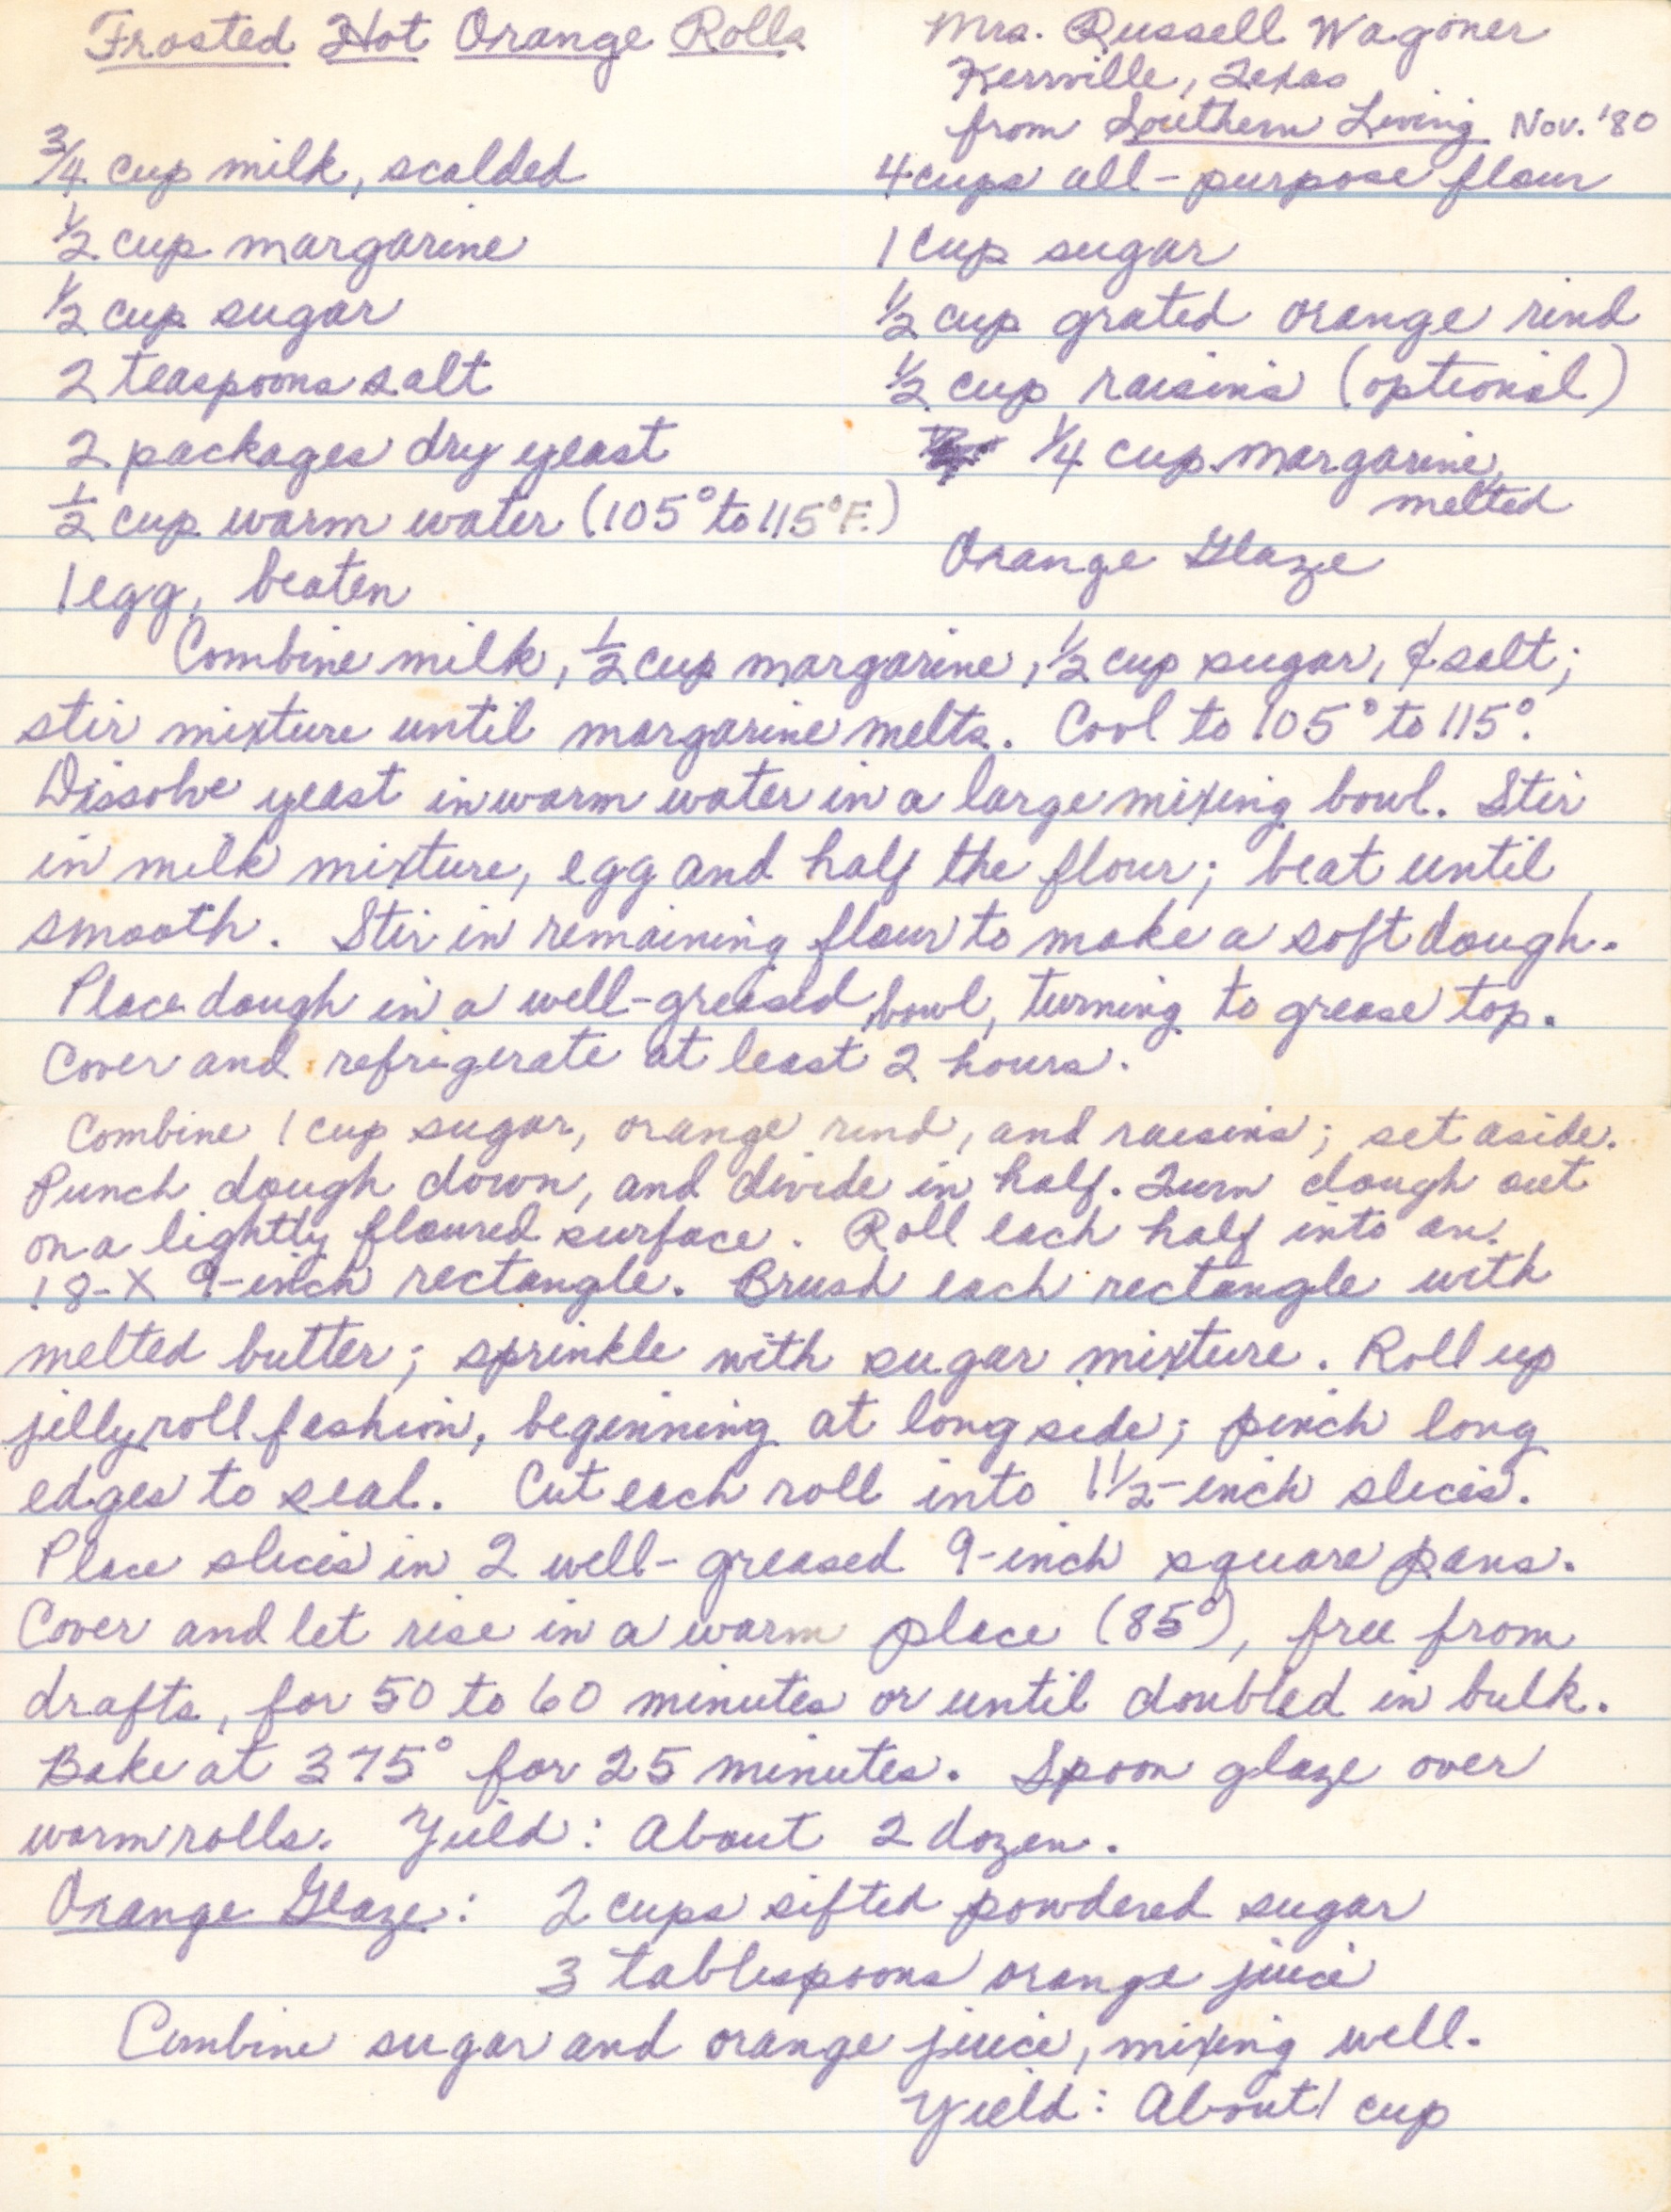 Frosted Hot Orange Rolls
Mrs. Russell Wagoner
Kerrville, Texas
from Southern Living Nov. '80
3/4 cup milk, scalded
1/2 cup margarine
1/2 cup sugar
2 teaspoons salt
2 packages dry yeast
1/2 cup warm water (105° to 115°F.)
1 egg, beaten
4 cups all-purpose flour
1 cup sugar
1/2 cup grated orange rind
1/2 cup raisins (optional)
1/4 cup margarine,
melted
Orange Glaze
Combine milk, 1/2 cup margarine, 1/2 cup sugar, & salt;
stir mixture until margarine melts. Cool to 105° to 115°.
Dissolve yeast in warm water in a large mixing bowl. Stir
in milk mixture, egg and half the flour; beat until
smooth. Stir in remaining flour to make a soft dough.
Place dough in a well-greased bowl, turning to grease top.
Cover and refrigerate at least 2 hours.
Combine 1 cup sugar, orange rind, and raisins; set aside.
Punch dough down, and divide in half. Turn dough out
on a lightly floured surface. Roll each half into an
18- X 9-inch rectangle. Brush each rectangle with
melted butter; sprinkle with sugar mixture. Roll up
jellyroll fashion, beginning at long side; pinch long
edges to seal. Cut each roll into 1 1/2-inch slices.
Place slices in 2 well-greased 9-inch square pans.
Cover and let rise in a warm place (85°), free from
drafts, for 50 to 60 minutes or until doubled in bulk.
Bake at 375° for 25 minutes. Spoon glaze over
warm rolls. Yield: About 2 dozen.
Orange Glaze: 2 cups sifted powdered sugar
3 tablespoons orange juice
Combine sugar and orange juice, mixing well.
Yield: About 1 cup